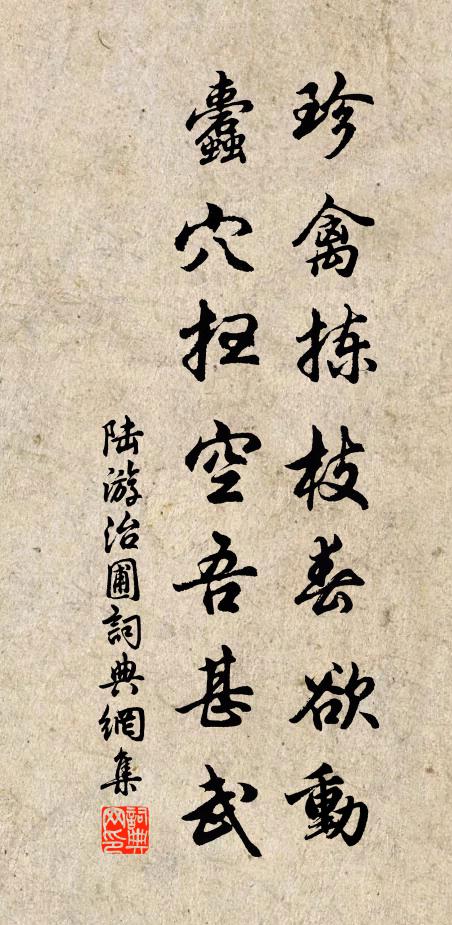 珍禽拣枝春欲動
蠹穴扫空吾甚武
陆游治圃詞典網集
詞典网印